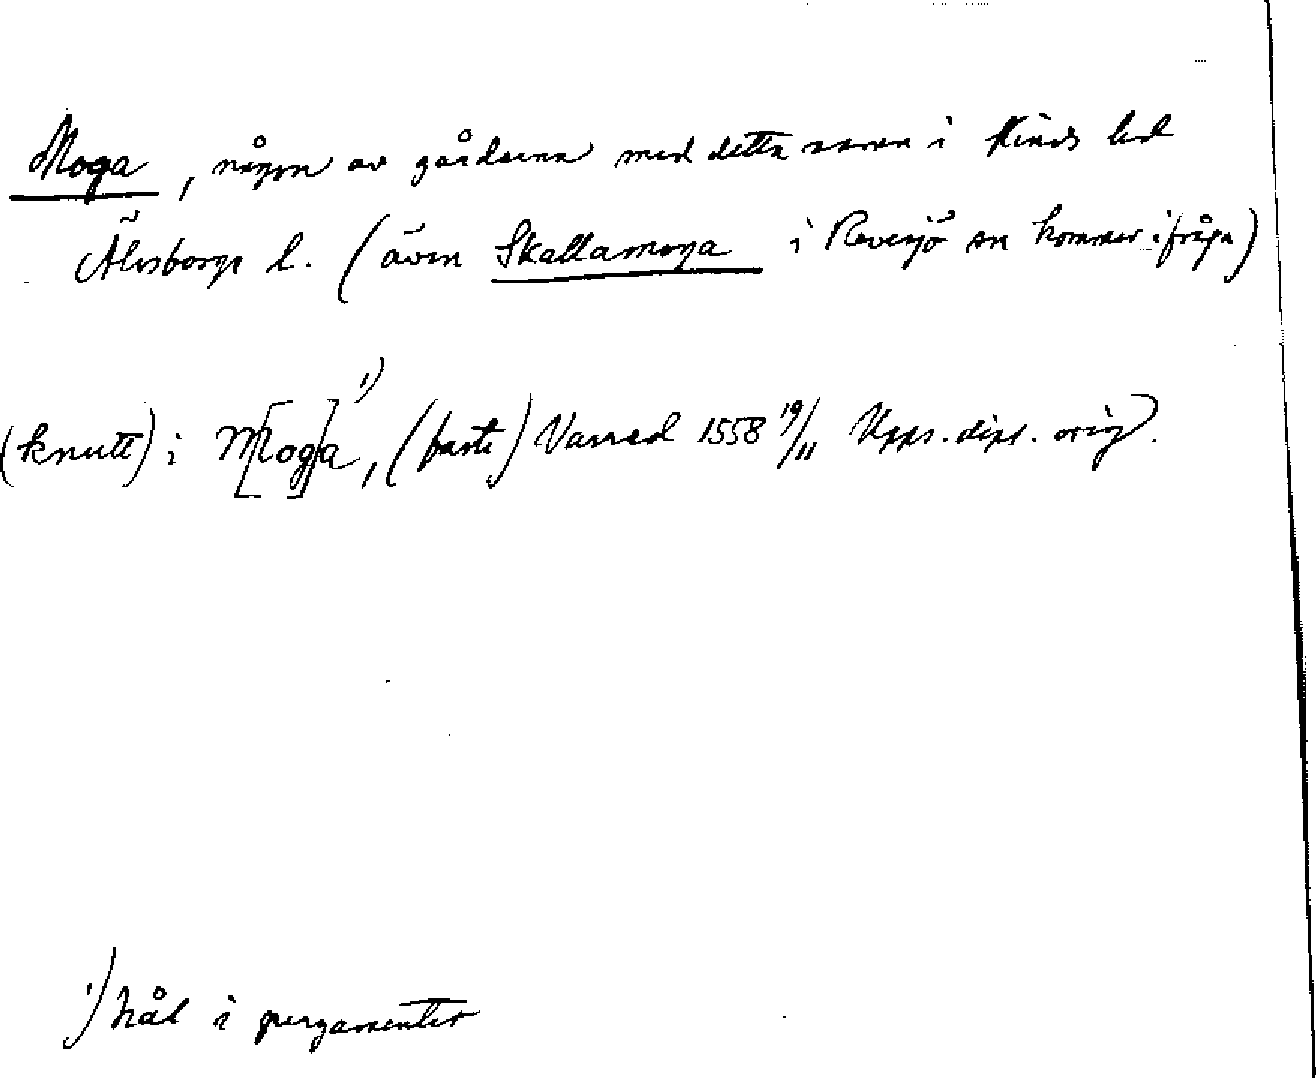 Moga, någon av gårdarna med detta namn i Kinds hd
Älvsborgs l. (även Skallamoga i Revesjö sn kommer ifråga)
(knutt) i M[og]a, ¹) (faste) Varned 1558 19/11 Upps. dipl. orig.
¹) hål i pergamentet